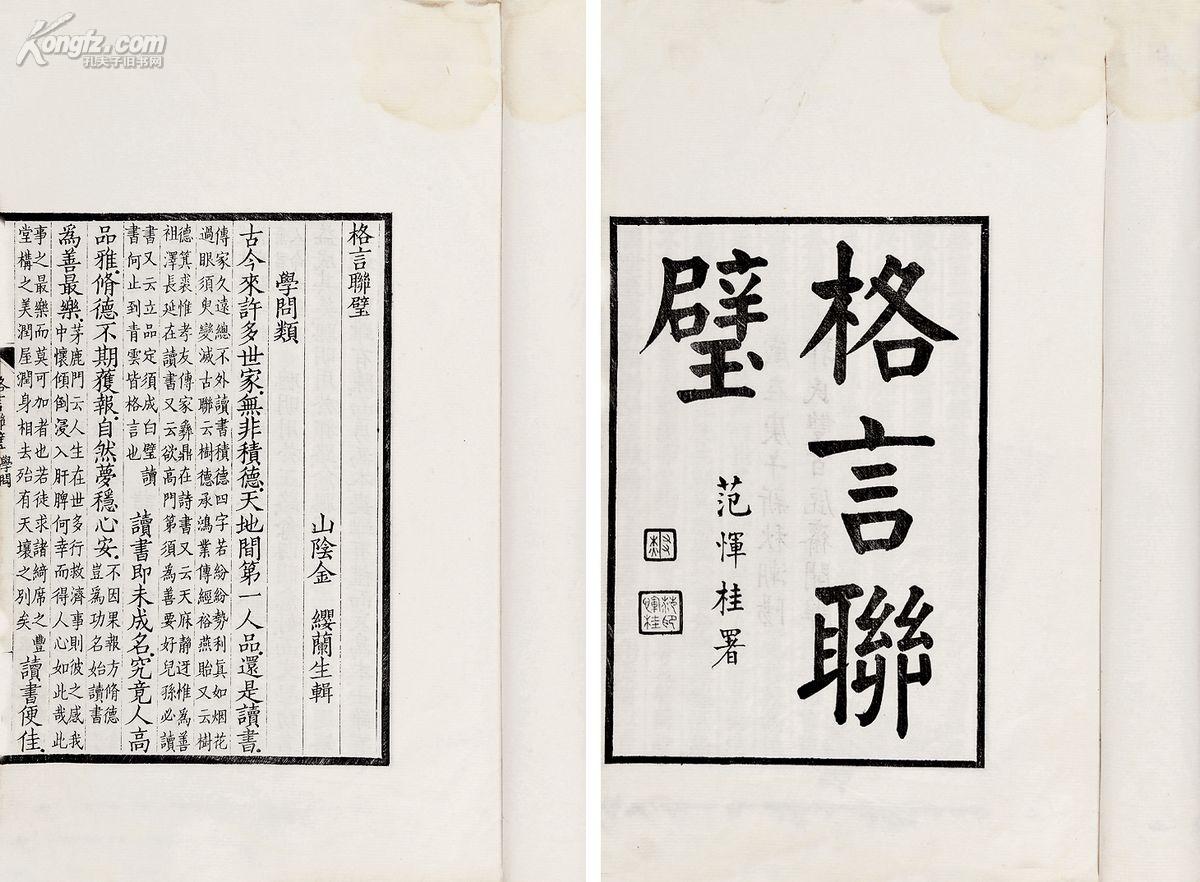 Kongfz.com
孔夫子旧书网
格言聯
璧
范惲桂署
格言聯璧
山陰金　纓蘭生輯
學問類
古今來許多世家.無非積德.天地間第一人品.還是讀書.
傳家久遠總不外讀書積德四字若紛紛勢利眞如烟花
過眼須臾變滅古聯云樹德承鴻業傳經裕燕貽又云樹
德箕裘惟孝友傳家彝鼎在詩書又云天庥靜迓惟為善
祖澤長延在讀書又云欲高門第須為善要好兒孫必讀
書又云立品定須成白璧讀
書何止到青雲皆格言也
讀書即未成名.究竟人高
品雅.脩德不期獲報.自然夢穩心安.
不因果報方脩德
豈為功名始讀書
為善最樂.
茅鹿門云人生在世多行救濟事則彼之感我
中懷傾倒浸入肝脾何幸而得人心如此哉此
事之最樂而莫可加者也若徒求諸綺席之豐
堂構之美潤屋潤身相去殆有天壤之別矣
讀書便佳.
格言聯璧 學問